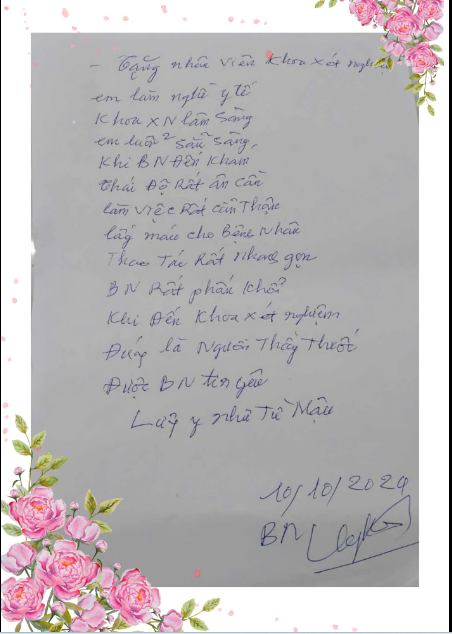 - Tặng nhân viên Khoa xét nghiệm
em làm nghề y tế
Khoa XN lâm sàng
em luôn² sẵn sàng,
Khi BN Đến Khám
thái Độ Rất ân cần
làm việc Rất cẩn Thận
lấy máu cho Bệnh Nhân
Thao Tác Rất nhanh gọn
BN Rất phấn khởi
Khi Đến Khoa xét nghiệm
Đúng là Người Thầy Thuốc
Được BN tin yêu
Lương y như Từ Mẫu
10/10/2024
BN